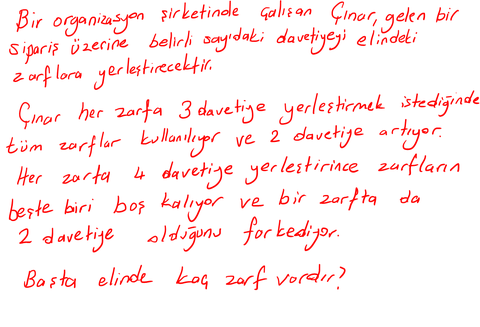 Bir organizasyon şirketinde çalışan Çınar, gelen bir
sipariş üzerine belirli sayıdaki davetiyeyi elindeki
zarflara yerleştirecektir.
Çınar her zarfa 3 davetiye yerleştirmek istediğinde
tüm zarflar kullanılıyor ve 2 davetiye artıyor.
Her zarfa 4 davetiye yerleştirince zarfların
beşte biri boş kalıyor ve bir zarfta da
2 davetiye olduğunu farkediyor.
Başta elinde kaç zarf vardır?